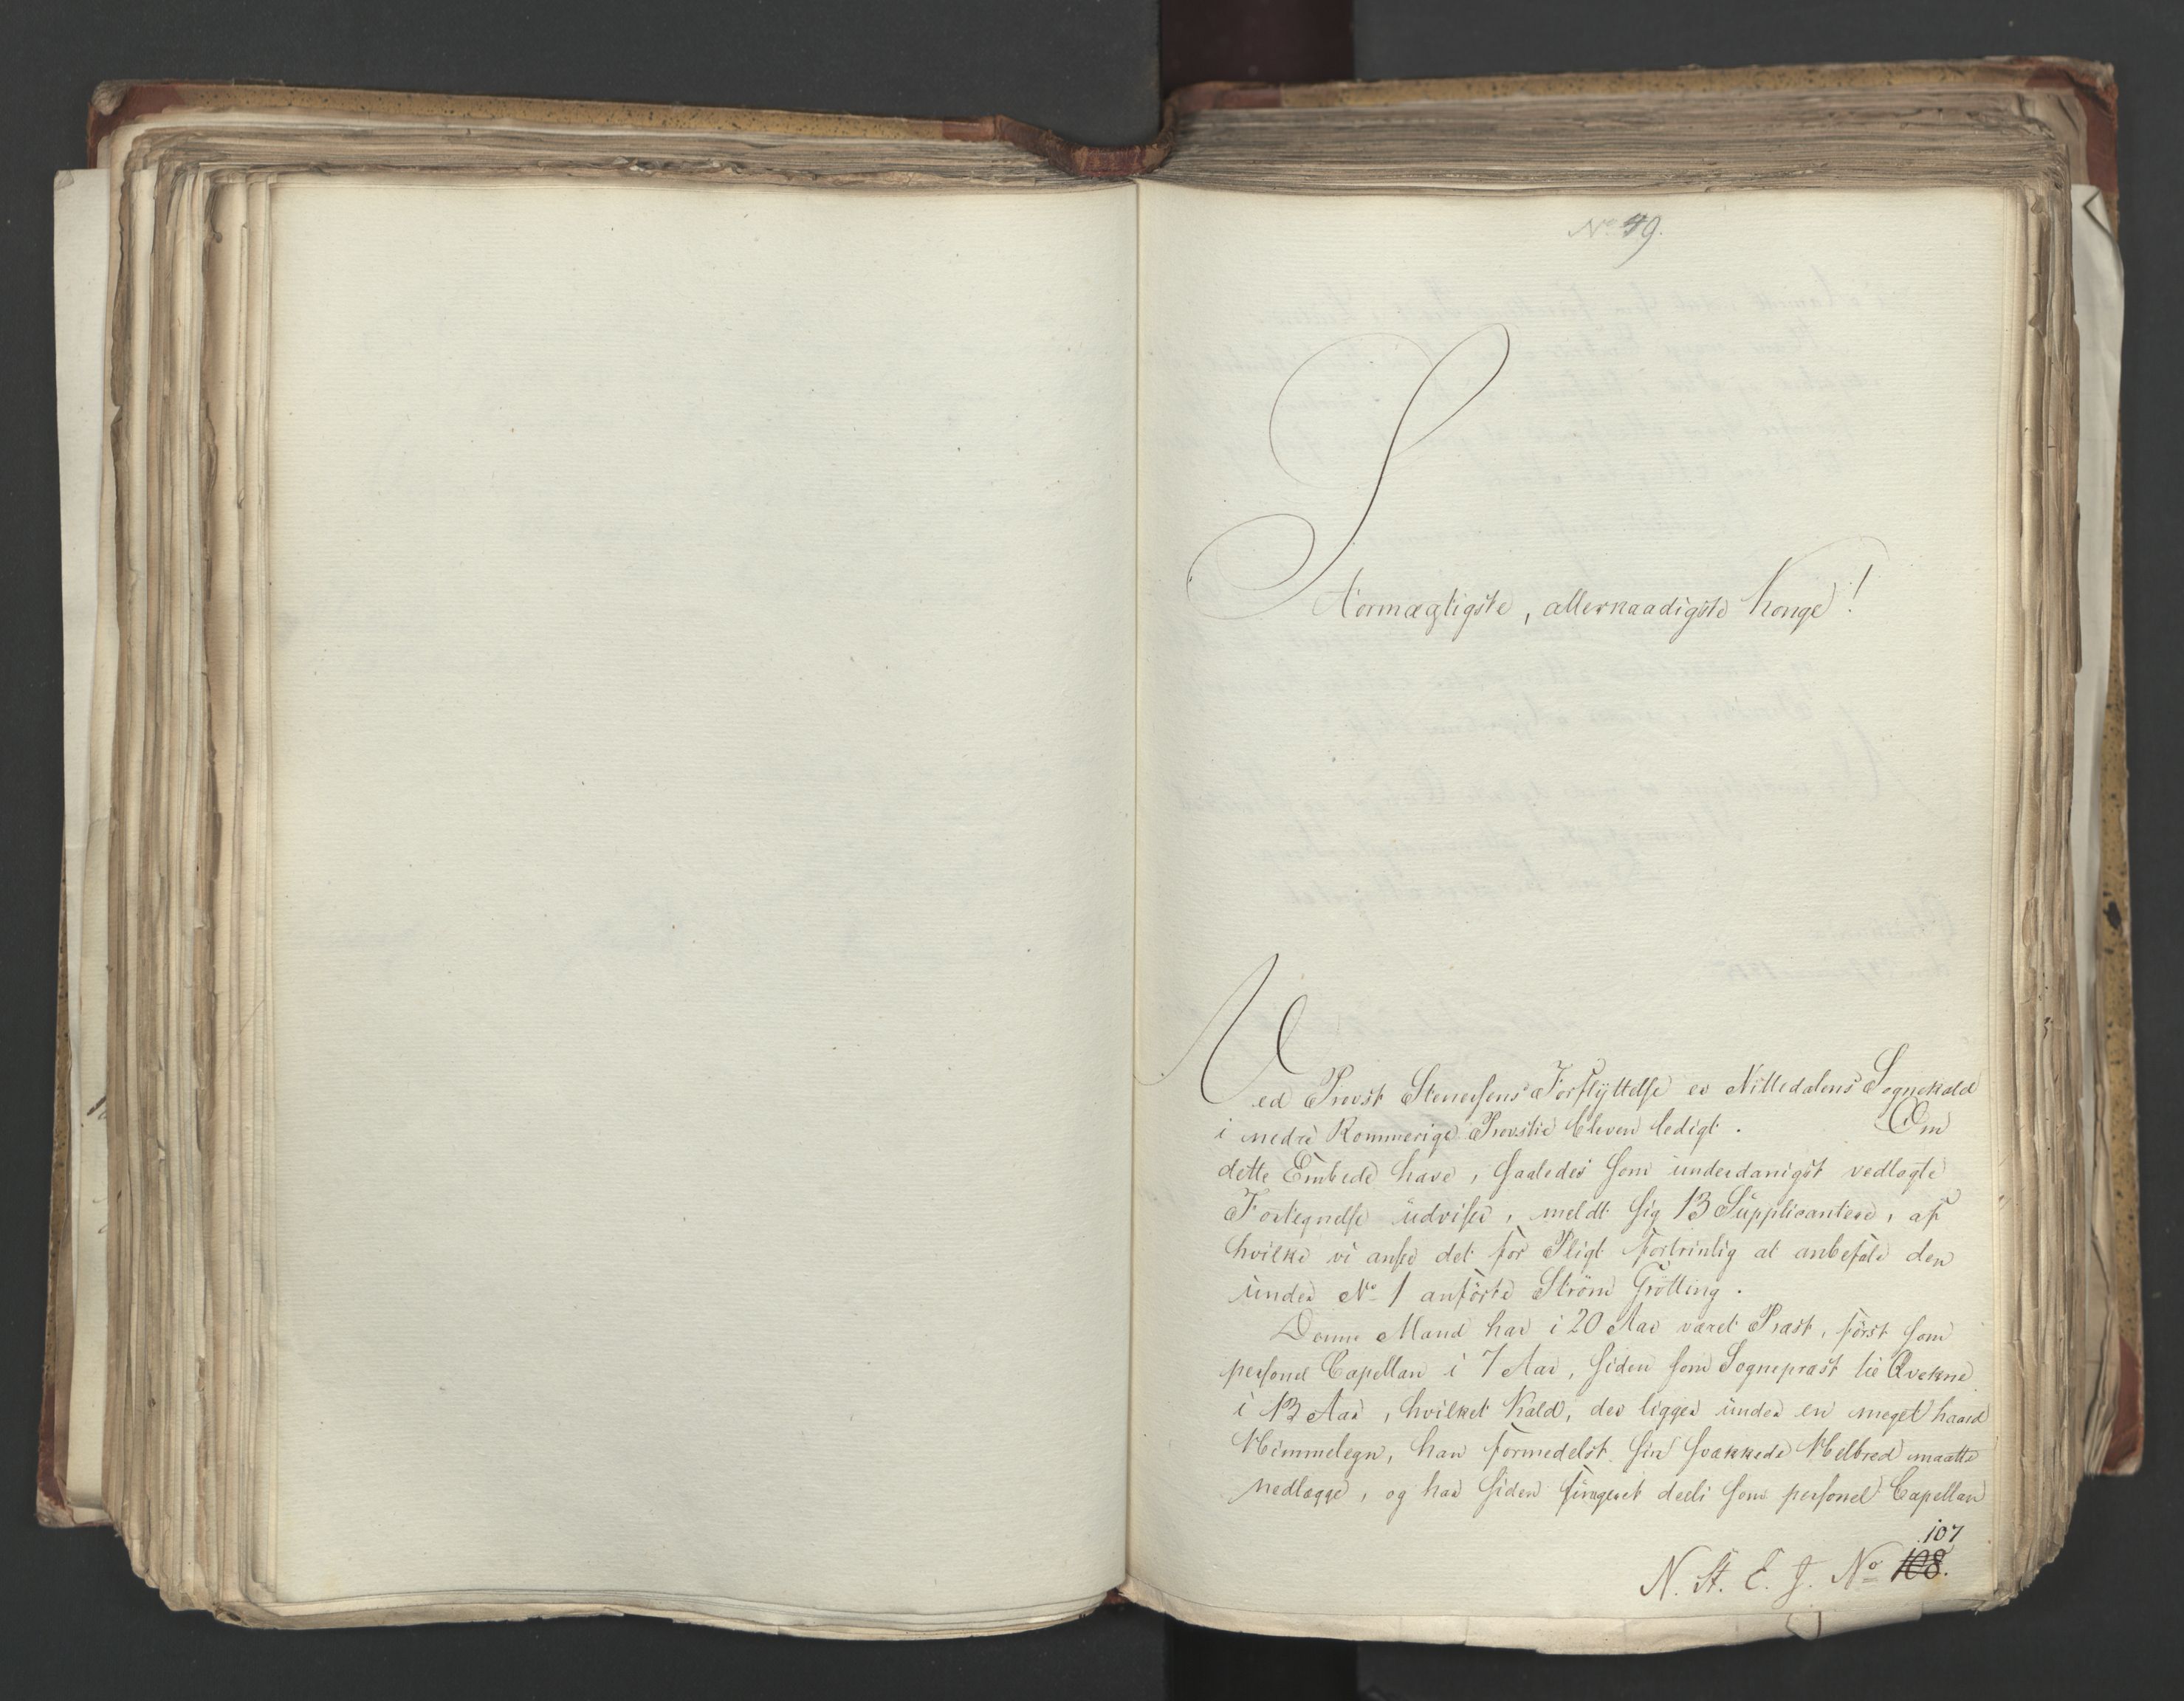 No 49.
Stormægtigste, allernaadigste Konge!
Ved Provst Stenersens Forflyttelse er Nittedalens Sognekald
i nedre Rommerige Provstie bleven ledigt. Om
dette Embede have, saaledes som underdanigst vedlagte
Fortegnelse udviser, meldt sig 13 Supplicantere, af
hvilke vi ansee det for Pligt fortrinlig at anbefale den
under No 1 anførte Strøm Grøtting.
Denne Mand har i 20 Aar været Præst, først som
personel Capellan i 7 Aar, siden som Sognepræst til Qvekne
i 13 Aar, hvilket Kald, der ligger under en meget haard
Himmelegn, han formedelst sin svækkede Helbred maatte
nedlægge, og har siden fungeret deels som personel Capellan
107
N. St. E. J. No 108.